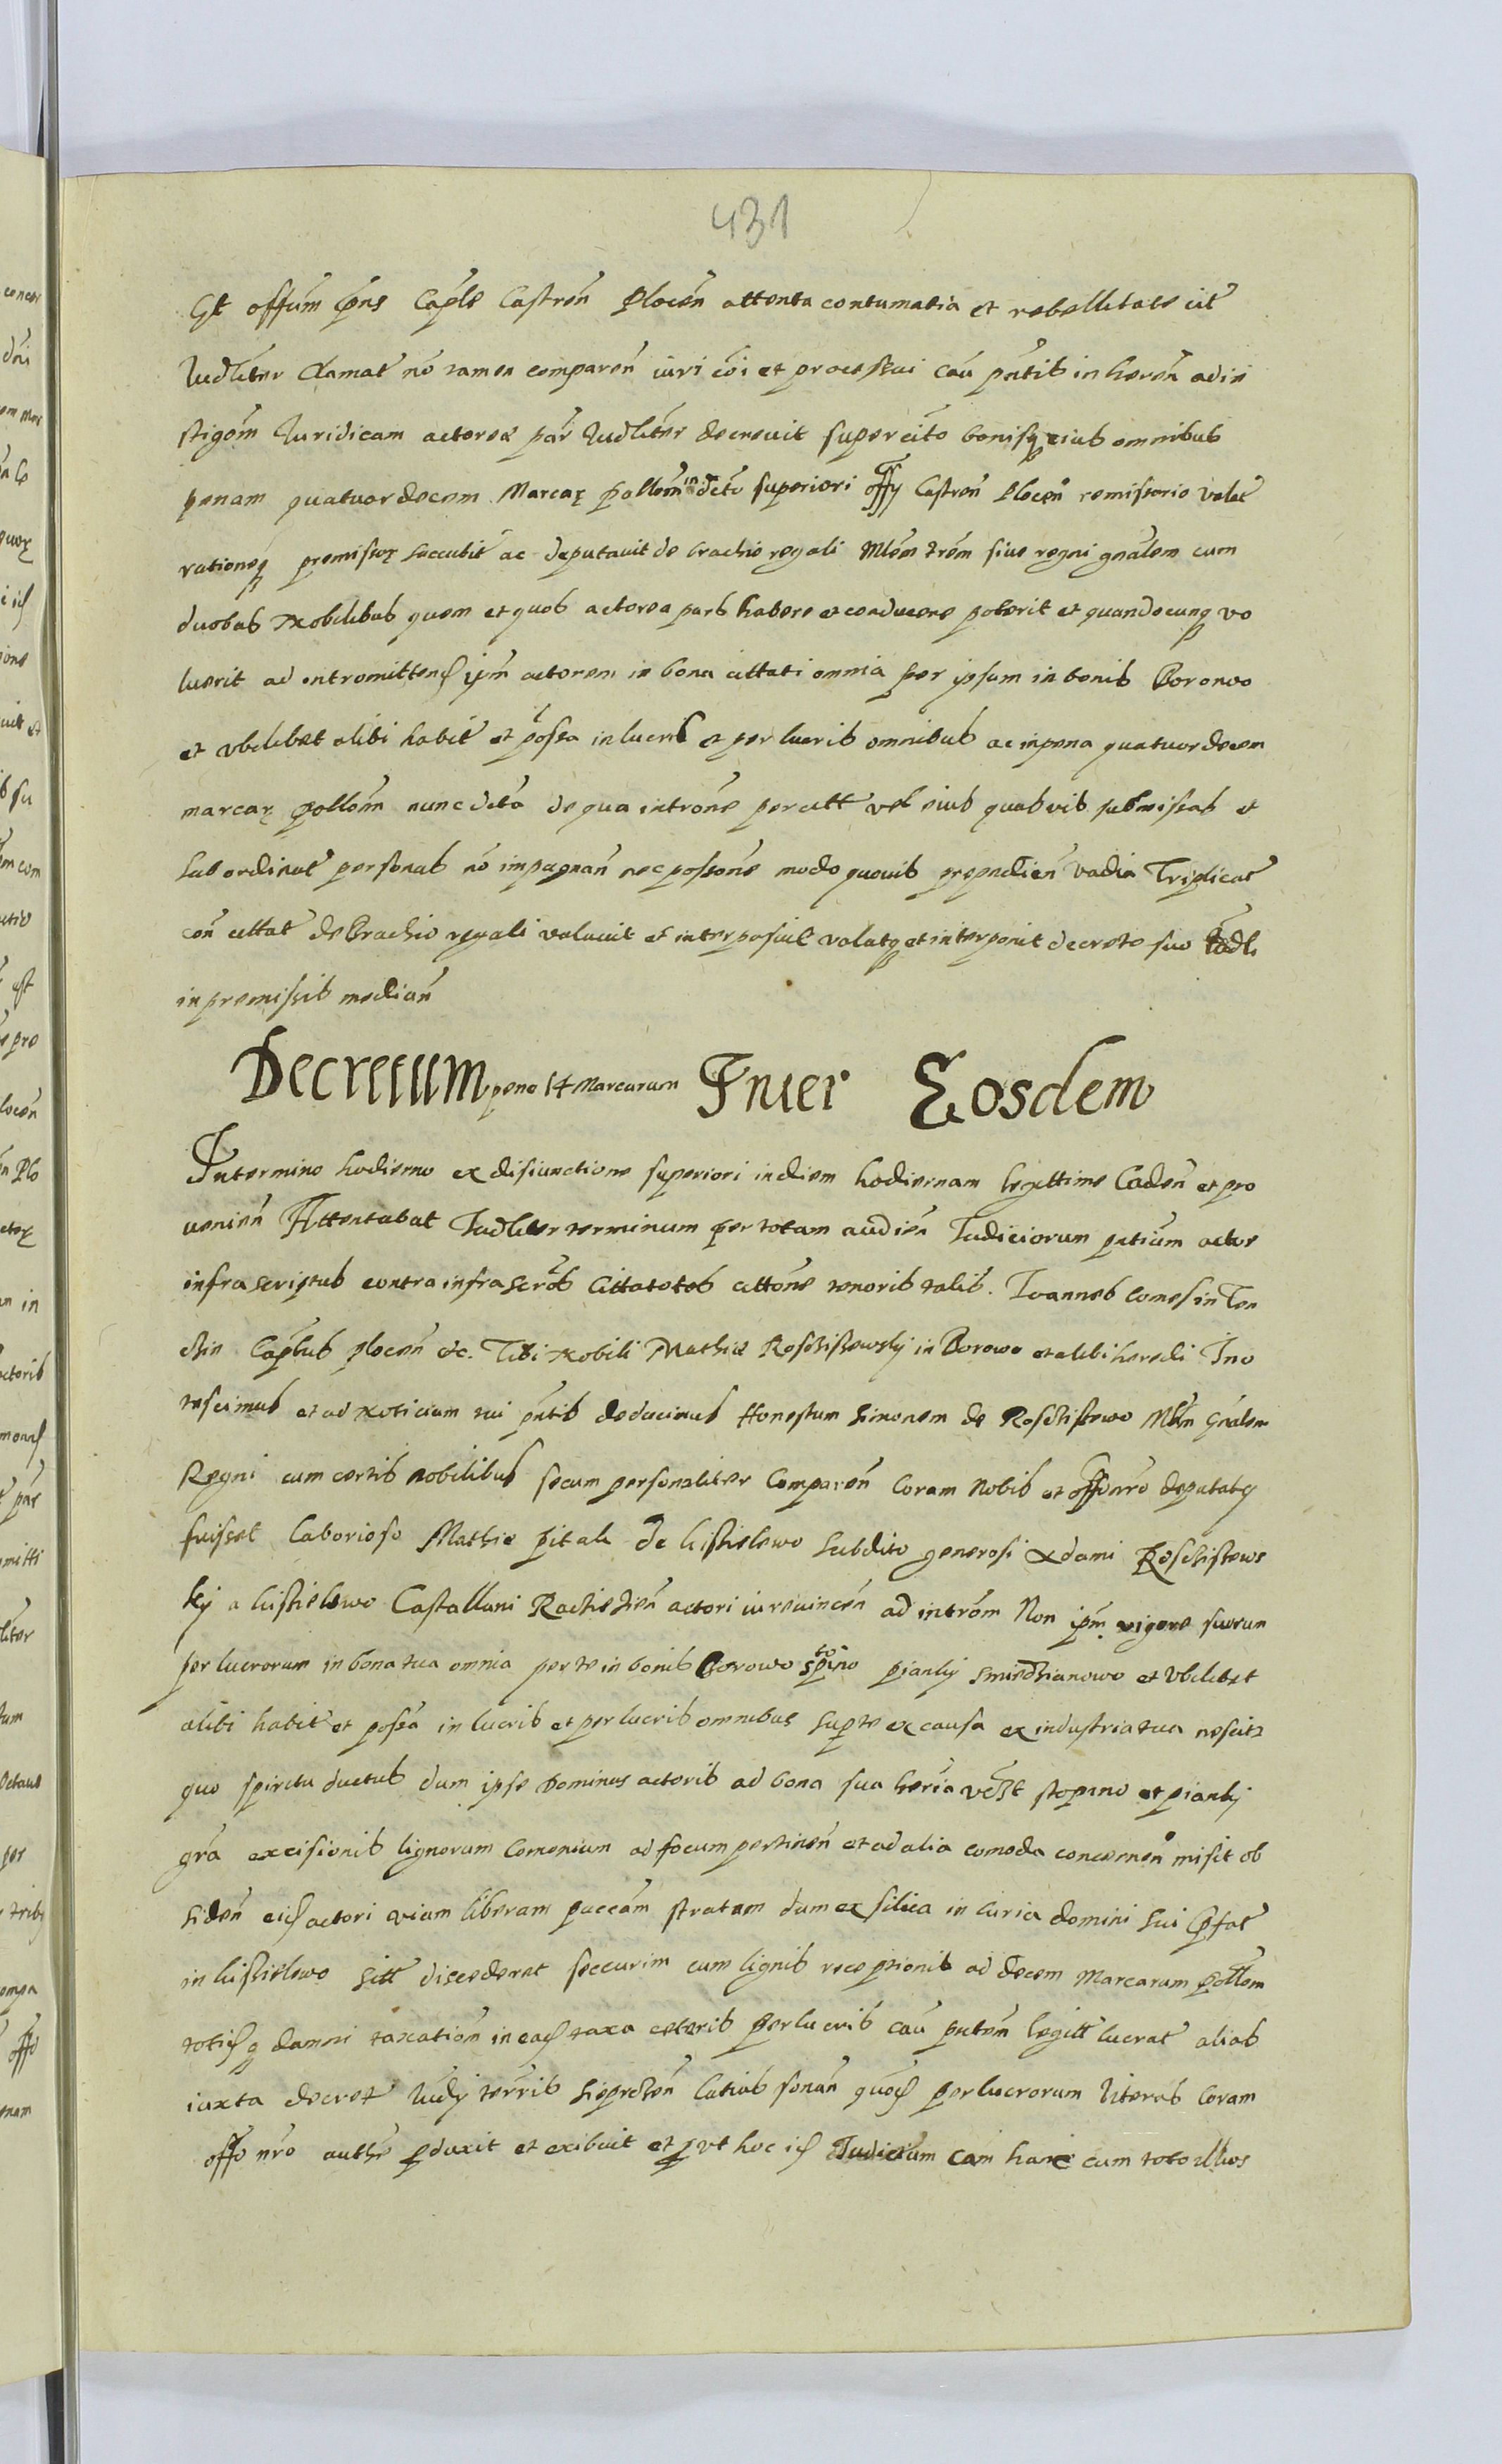 431
Et offum pns Caple Castren Plocen attenta contumatia et rebellitate cit
Iudliter Clamat no tamen comparen iuri coi et processui cau pntib inheren adin
stigom Iuridicam actorea par Iudliter decrevit super cito bonisq eius omnibus
penam quatuordecem Marcar pollom in dcto superiori offy Castren Plocen remissorio valet
rationeq premissor succubit ac deputavit de brachio regali Mlem trem sive regni gnalem cum
duobus Nobilibus quem et quos actorea pars habere et conducere poterit et quandocunq vo
luerit ad intromitten ipm actorem in bona cittati omnia per ipsum in bonis Borowo
et ubilibet alibi habit et possa in lucris et perlucris omnibus ac in pena quatuordecem
marcar pollom nunc dcta de qua introne per citt vel eius quasvis submissas et
subordinat personas no impagnan nec possone modo quovis prepedien vadia Triplicat
con cittat de Brachio regali valavit et interposuit valatq et interponit decreto suo
in premissis median
Decretum pena 14 Marcarum Inter Eosdem
In termino hodierno ex disiunctione superiori in diem hodiernam legittime Caden et pro
venien Attentabat Iudliter terminum per totam audien Iudiciorum pntium actor
infrascriptus contra infrascrob Cittatotes cittone tenoris talis. Ioannes Comes in Ten
chin Captus plocen etc. Tibi Nobili Mathie Roschisewsky in Borowo et alibi heredi Ino
tescimus et ad Noticiam tui pntib deducimus Honestum Simonem de Roschisewo Mlm Gnalem
Regni cum certis nobilibus secum personaliter Comparen Coram Nobis et offo nro deputaty
fuisset Laborioso Mathie pitala de Lisielewo Subdito generosi Adami Roschisews
ky a Lisielewo Castallani Rachiezien actori iurevincen ad introm Non ipm vigore suorum
perlucrorum in bona tua omnia per te in bonis Borowo stopino pianky Smiedzianowo et Ubilibet
alibi habit et possa in lucris et perlucris omnibus super te ex causa ex industria tua nescitr
quo spiritu ductus dum ipse Dominus actoris ad bona sua stopino et pianky
gra excisionis lignorum Comenium ad focum pertinen et ad alia comoda concernen misit ob
siden actori viam liberam paccam stratam dum ex silva in Curia domini sui pfat
in Lisielewo sitt discederet seccurim cum lignis receptionis ad decem Marcarum pollom
totiq damni taxation in ead taxa ceteris perlucris cau pntem legitt lucrat alias
iuxta decret Iudy terris Sieprczen latius sonan quod perlucrorum literas Coram
offo nro authe pduxit et exibuit et put hoc id Iudicium cam hanc cum toto illius